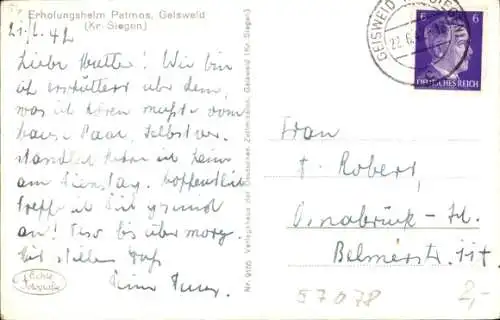 Erholungsheim Patmos, Geisweld
(Kr. Siegen)
21.6.42
Liebe Mutter! Wie bin
ich erschüttert über dem,
was ich hören mußte vom
Hause Paar. Selbstver-
ständlich ich heim
am Dienstag. Hoffentlich
treffe ich Dich gesund
an! Also bis übermorg.
Mit stillem
Deine
Echte
Fotografie
Nr. 9105 Verlagshaus der Deutschen Zeltmission, Geisweid (Kr. Siegen)
GEISWELD
22.6.
6 6
DEUTSCHES REICH
Frau
Robert,
Osnabrück
Belmerstr.
57078
2,-